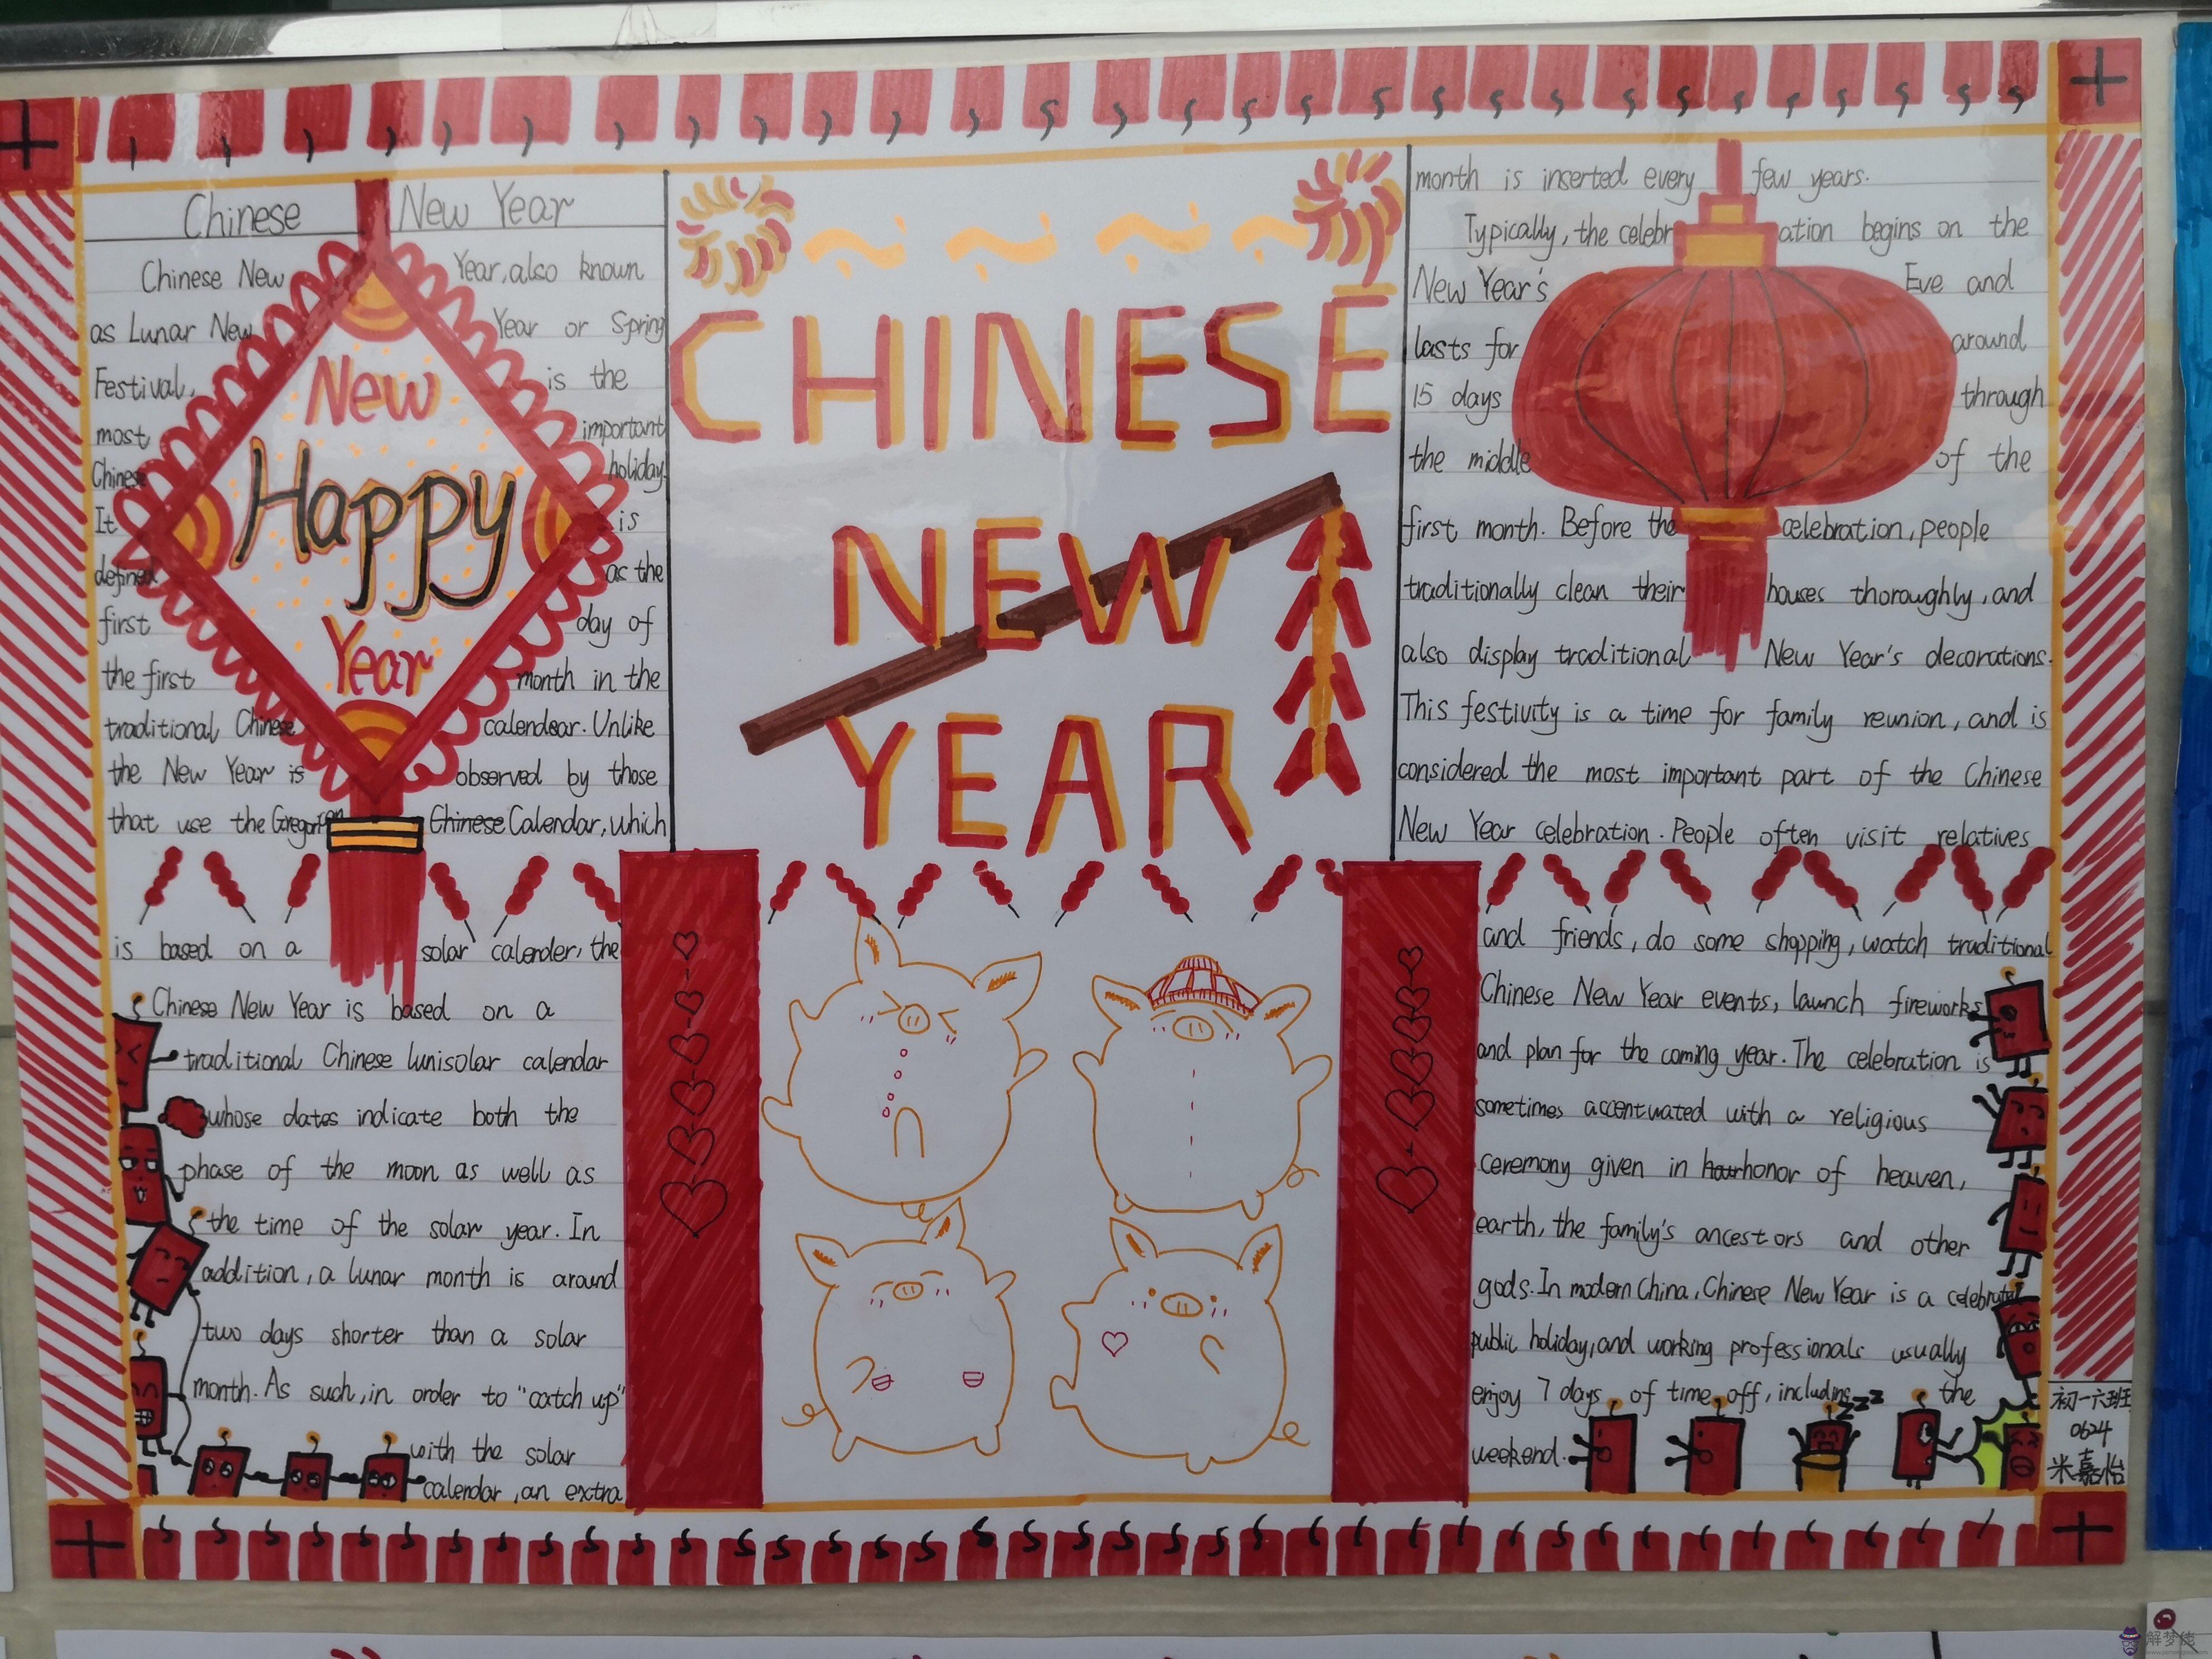 Chinese New Year
Chinese New Year, also known
as Lunar New Year or Spring
Festival, is the
most important
Chinese holiday.
It is
defined as the
first day of
the first month in the
traditional Chinese calendear. Unlike
the New Year is observed by those
that use the Gregorian Chinese Calendar, which
is based on a solar calender, the
Chinese New Year is based on a
traditional Chinese lunisolar calendar
whose dates indicate both the
phase of the moon as well as
the time of the solar year. In
addition, a lunar month is around
two days shorter than a solar
month. As such, in order to "catch up"
with the solar
calendar, an extra
New
Happy
Year
CHINESE
NEW
YEAR
month is inserted every few years.
Typically, the celebration begins on the
New Year's Eve and
lasts for around
15 days through
the middle of the
first month. Before the celebration, people
traditionally clean their houses thoroughly, and
also display traditional New Year's decorations.
This festivity is a time for family reunion, and is
considered the most important part of the Chinese
New Year celebration. People often visit relatives
and friends, do some shopping, watch traditional
Chinese New Year events, launch fireworks
and plan for the coming year. The celebration is
sometimes accentuated with a religious
ceremony given in honor of heaven,
earth, the family's ancestors and other
gods. In modern China, Chinese New Year is a celebrated
public holiday, and working professionals usually
enjoy 7 days of time off, including the
weekend.
zzz
初一六班
0624
米嘉怡
解梦佬